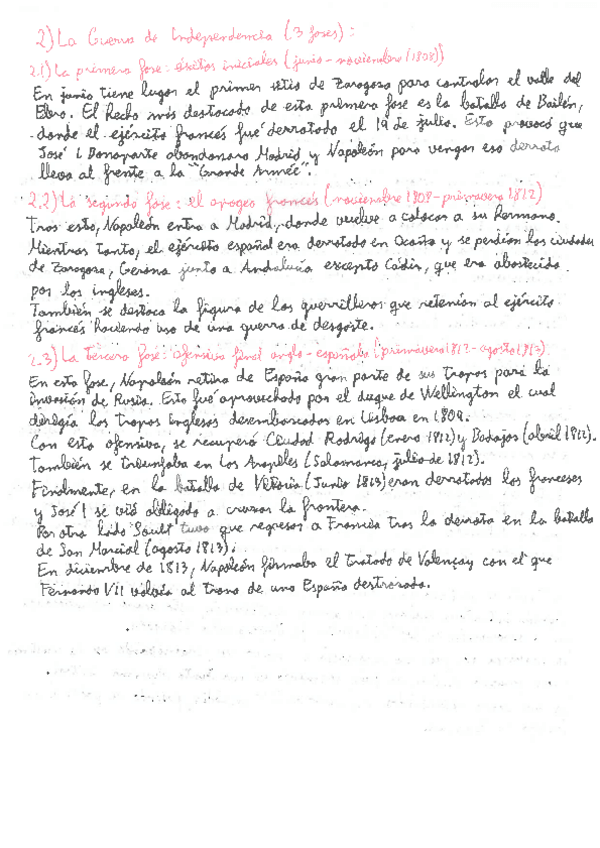 2) La Guerra de Independencia (3 fases):
2.1) La primera fase: éxitos iniciales (junio - noviembre (1808))
En junio tiene lugar el primer sitio de Zaragoza para controlar el valle del
Ebro. El hecho más destacado de esta primera fase es la batalla de Bailén,
donde el ejército francés fué derrotado el 19 de julio. Esto provocó que
José I Bonaparte abandonara Madrid, y Napoleón para vengar esa derrota
lleva al frente a la "Grande Armée".
2.2) La segunda fase: el apogeo francés (noviembre 1808 - primavera 1812)
Tras esto, Napoleón entra a Madrid, donde vuelve a colocar a su hermano.
Mientras tanto, el ejército español era derrotado en Ocaña y se perdían las ciudades
de Zaragoza, Gerona junto a Andalucía excepto Cádiz, que era abastecida
por los ingleses.
También se destaca la figura de los guerrilleros que retenían al ejército
francés haciendo uso de una guerra de desgaste.
2.3) La Tercera fase: ofensiva final anglo-española (primavera 1812 - agosto 1813)
En esta fase, Napoleón retira de España gran parte de sus tropas para la
invasión de Rusia. Esto fué aprovechado por el duque de Wellington el cual
dirigía las tropas inglesas desembarcadas en Lisboa en 1808.
Con esta ofensiva, se recuperó Ciudad Rodrigo (enero 1812) y Badajoz (abril 1812).
También se triunfaba en Los Arapiles (Salamanca, julio de 1812).
Finalmente, en la batalla de Vitoria (Junio 1813) eran derrotados los franceses
y José I se vió obligado a cruzar la frontera.
Por otro lado Soult tuvo que regresar a Francia tras la derrota en la batalla
de San Marcial (agosto 1813).
En diciembre de 1813, Napoleón firmaba el tratado de Valençay con el que
Fernando VII volvía al trono de una España destrozada.